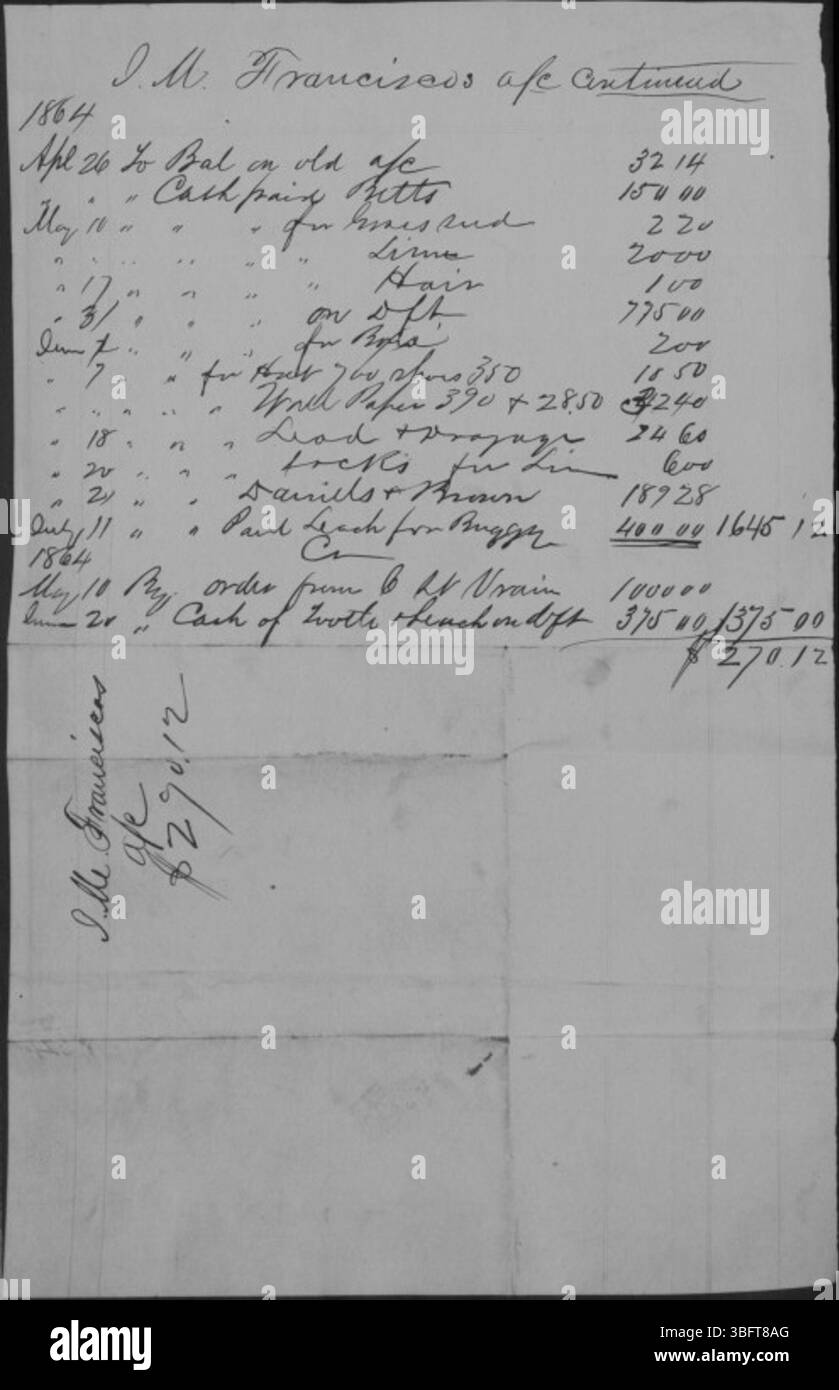 J. M. Franciscos a/c continued
1864
Apl 26 To Bal on old a/c 32 14
" " " Cash paid Betts 150 00
May 10 " " " for 2 20
" " " " " " Lime 20 00
" 17 " " " " Hair 1 00
" 31 " " " on Dft 775 00
June " " " for 2 00
" 7 " for Hat 700 shoes 350 10 50
" " " " " Wall Paper 390 + 28.50 32 40
" 18 " " " Lead + Drayage 24 60
" 20 " " " for 6 00
" 21 " " Daniels + Brown 189 28
July 11 " " Paid Leach for Buggy 400 00 1645 12
1864 Cr
May 10 By order from C St Vrain 1000 00
June 20 " Cash of Tootle + Leach on dft 375 00 1375 00
$ 270.12
J. M. Franciscos
a/c
$270.12
alamy
Image ID: 3BFT8AG
www.alamy.com